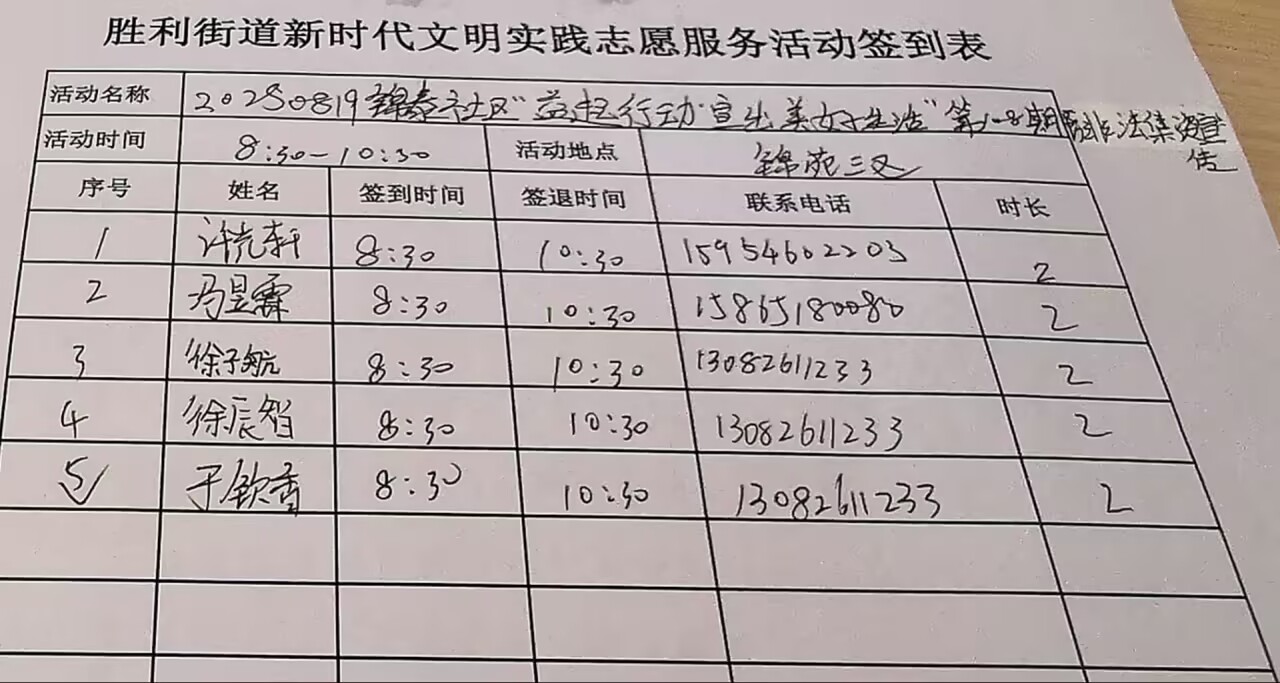 胜利街道新时代文明实践志愿服务活动签到表
活动名称 20250819锦泰社区"益起行动 宣出美好生活"第18期防非法集资宣传
活动时间 8:30-10:30 活动地点 锦苑三区
序号 姓名 签到时间 签退时间 联系电话 时长
1 许克轩 8:30 10:30 15954602203 2
2 冯昱霖 8:30 10:30 15865180080 2
3 徐子航 8:30 10:30 13082611233 2
4 徐辰智 8:30 10:30 13082611233 2
5 于钦香 8:30 10:30 13082611233 2